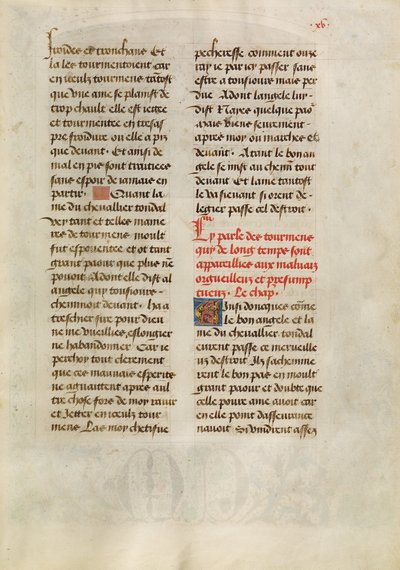 .xv.
froides et tronchans Et
la les tourmentoient car
en iceulx tourmens tātost
que une ame se plainst de
trop chault elle est iettee
et tourmentee en tresas
pre froidure ou elle a pis
que devant · Et ainsi de
mal en pis sont traittiees
sans espoir de iamais en
partir · Quant la
me du chevallier tondal
vey tant et telles manie
res de tourmens moult
fut espoentee et ot tant
grant paour que plus ne
pouoit Adont elle dist al
angele qui tousiours
cheminoit devant · ha a
treschier sire pour dieu
ne me vueillies eslongier
ne habandonner Car ie
perchoy tout clerement
que ces mauvais esperits
ne aguaittent apres aul
tre chose fors de moy ravir
et Jetter en iceulx tour
mens Las moy chetifve
pecheresse comment ose
ray ie par icy passer sans
estre a tousiours mais per
due Adont langele luy
dist Nayes quelque pao
mais viens seurement
apres moy ou marches cy
devant · Atant le bon an
gele se mist au chemin tout
devant Et lame tantost
le va sievant si orent de
legier passe cel destroit ·
Cy parle des tourmens
qui de long temps sont
appareillies aux maluais
orgueilleux et presump
tueux · Le chap.
Ainsi doncques cōme
le bon angele et la
me du chevallier tondal
eurent passe ce merveille
ux destroit Ilz sachemine
rent le bon pas en moult
grant paour et doubte que
celle povre ame avoit car
en elle point dasseurance
navoit Si vindrent assez